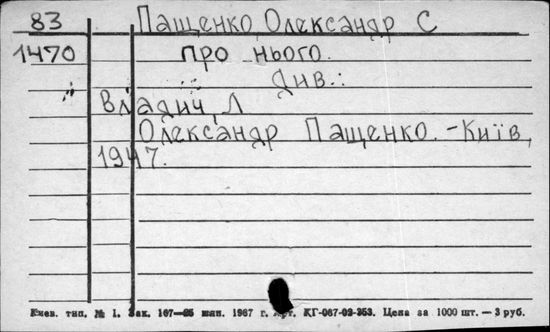 83 Пащенко, Олександр С
1470 про нього
див.:
Владич, Л
Олександр Пащенко. - Київ,
1947.
Киев. тип. № 1. Зак. 167— 1967 г. КГ-087-02-353. Цена за 1000 шт. — 3 руб.